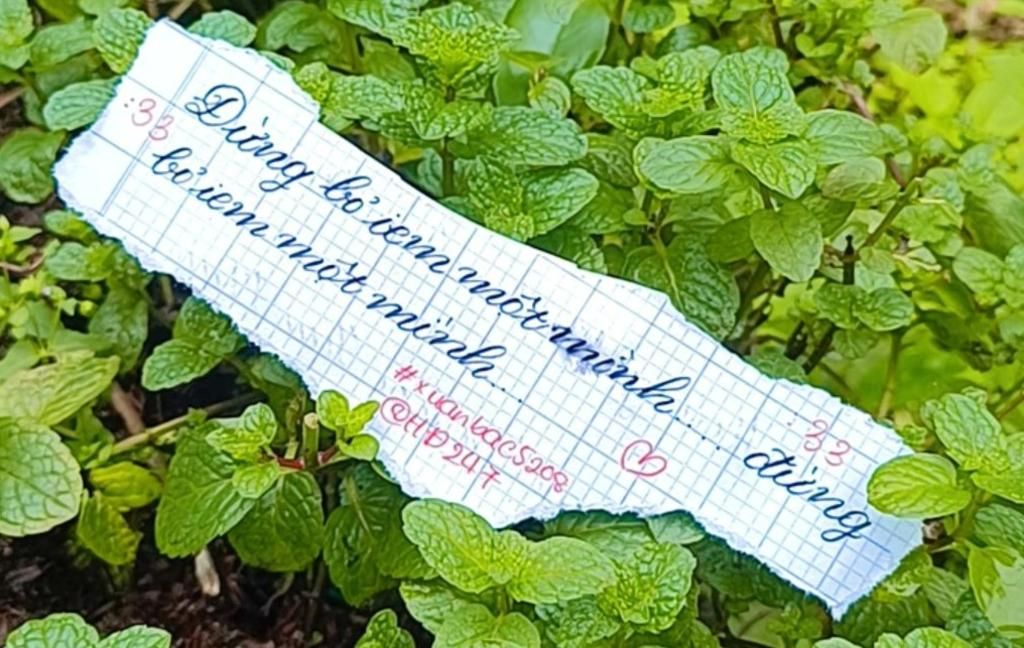 :33
Đừng bỏ iem một mình..... đừng
bỏ iem một mình...
:33
#xuanbac5208
@HĐ247